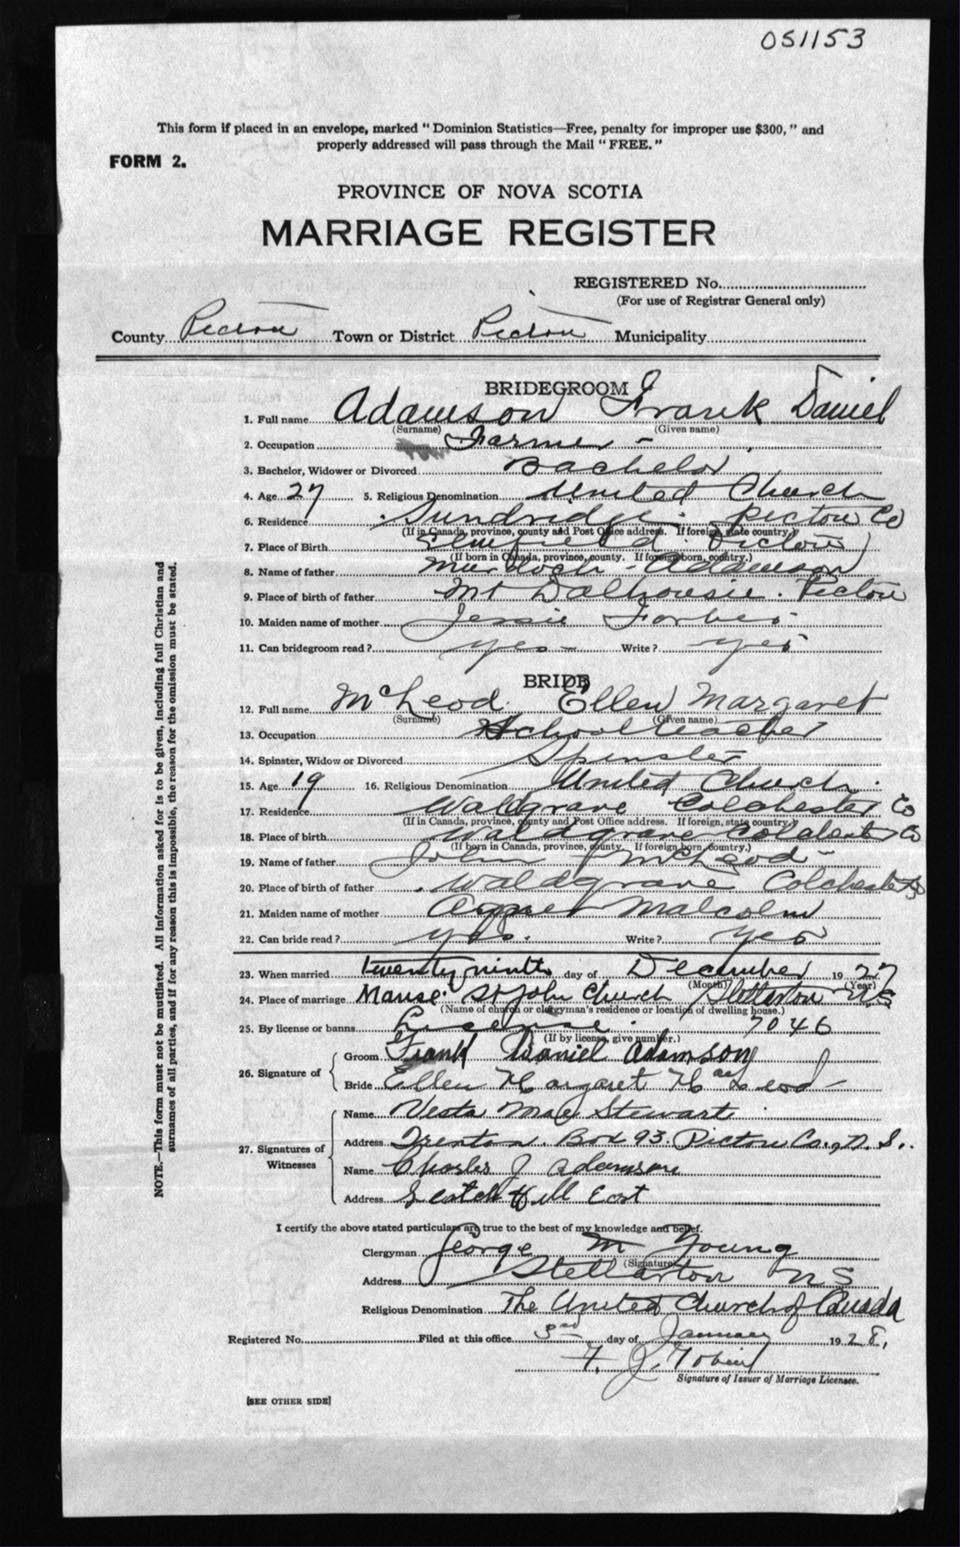 051153
This form if placed in an envelope, marked "Dominion Statistics—Free, penalty for improper use $300," and
properly addressed will pass through the Mail "FREE."
FORM 2.
PROVINCE OF NOVA SCOTIA
MARRIAGE REGISTER
REGISTERED No.
(For use of Registrar General only)
County Pictou Town or District Pictou Municipality
BRIDEGROOM
1. Full name Adamson Frank Daniel
(Surname) (Given name)
2. Occupation Farmer -
3. Bachelor, Widower or Divorced Bachelor
4. Age 27 5. Religious Denomination United Church
6. Residence Sundridge Pictou Co
(If in Canada, province, county and Post Office address. If foreign, state country.)
7. Place of Birth Pictou
(If born in Canada, province, county. If foreign born, country.)
8. Name of father Murdoch - Adamson
9. Place of birth of father Mt Dalhousie. Pictou
10. Maiden name of mother Jessie Forbes
11. Can bridegroom read? yes - Write? yes
BRIDE
12. Full name McLeod Ellen Margaret
(Surname) (Given name)
13. Occupation School teacher
14. Spinster, Widow or Divorced Spinster
15. Age 19 16. Religious Denomination United Church
17. Residence Waldgrave Colchester Co
(If in Canada, province, county and Post Office address. If foreign, state country.)
18. Place of birth Waldgrave Colchester Co
(If born in Canada, province, county. If foreign born, country.)
19. Name of father John McLeod
20. Place of birth of father Waldgrave Colchester Co
21. Maiden name of mother Agnes Malcolm
22. Can bride read? yes. Write? yes
23. When married twenty ninth day of December 1927
(Month) (Year)
24. Place of marriage Manse St John Church Stellarton NS
(Name of church or clergyman's residence or location of dwelling house.)
25. By license or banns License. 7046
(If by license, give number.)
26. Signature of
Groom Frank Daniel Adamson
Bride Ellen Margaret MacLeod
27. Signatures of Witnesses
Name Vesta May Stewart
Address Trenton. Box 93. Pictou Co., N. S.
Name Charles J Adamson
Address Scotch Hill East
I certify the above stated particulars are true to the best of my knowledge and belief.
Clergyman George M Young
(Signature)
Address Stellarton NS
Religious Denomination The United Church of Canada
Registered No. Filed at this office 3rd day of January 1928,
F. J. Tobin
Signature of Issuer of Marriage Licenses.
[SEE OTHER SIDE]
NOTE.—This form must not be mutilated. All information asked for is to be given, including full Christian and
surnames of all parties, and if for any reason this is impossible, the reason for the omission must be stated.